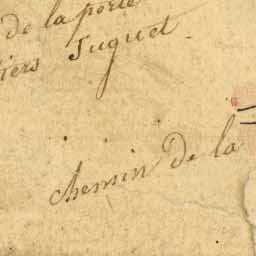 de la porte
tiers Juguet.
chemin de la